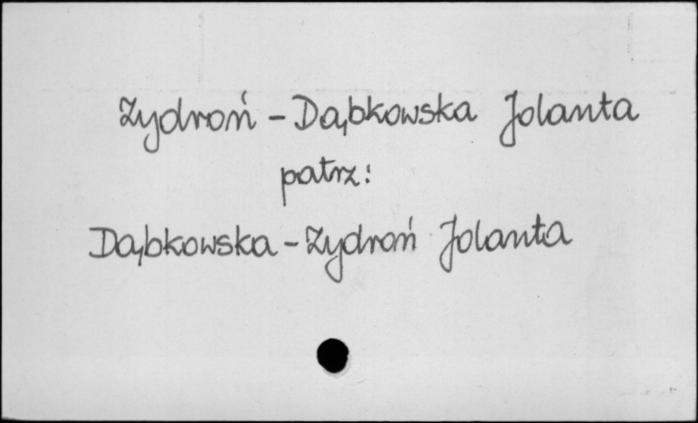 Zydroń - Dąbkowska Jolanta
patrz:
Dąbkowska - Zydroń Jolanta